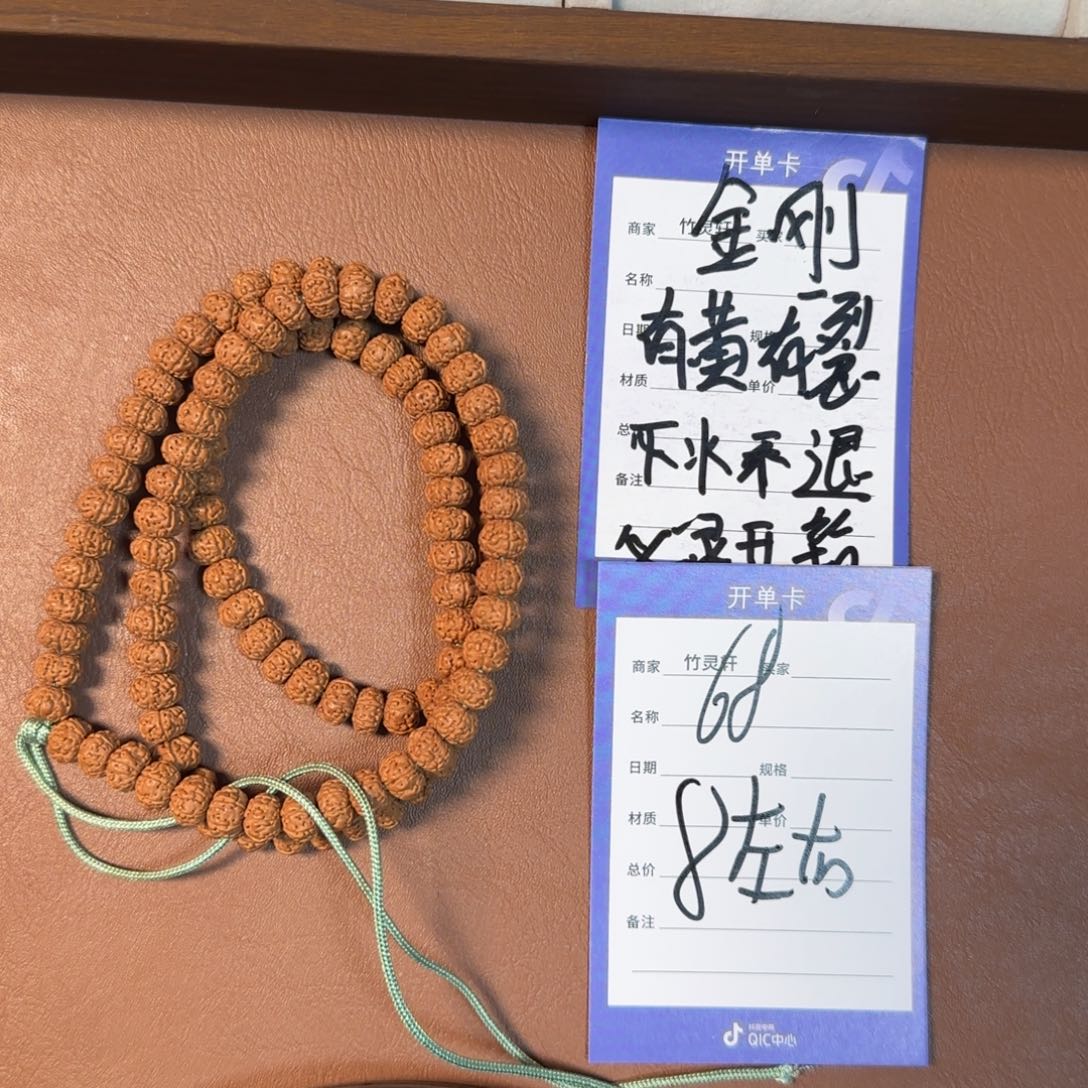 开单卡
金刚
商家 竹灵轩 买家
名称
有黄有裂
日期 规格
材质 单价
下水不退
备注
开单卡
68
商家 竹灵轩 买家
名称
日期 规格
8左右
材质 单价
总价
备注
抖音电商
QIC中心